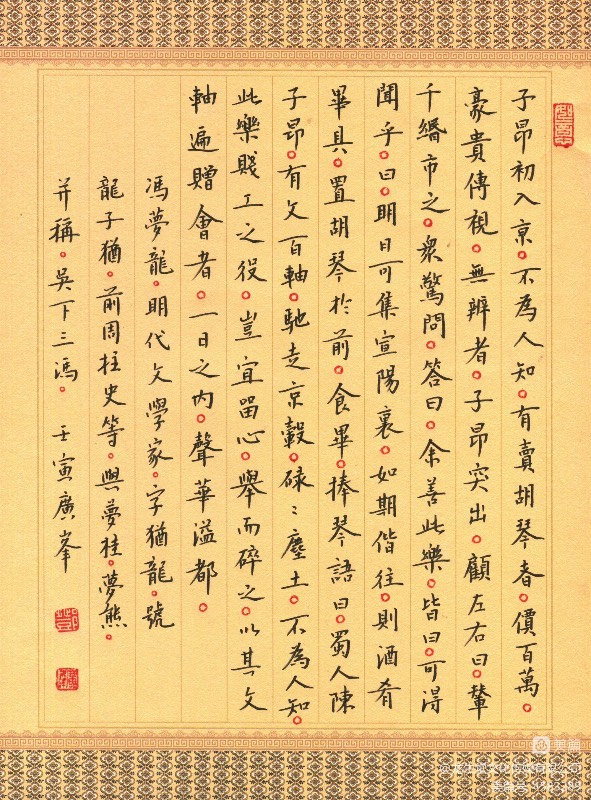 子昂初入京。不為人知。有賣胡琴者。價百萬。
豪貴傳視。無辨者。子昂突出。顧左右曰。輦
千緡市之。眾驚問。答曰。余善此樂。皆曰。可得
聞乎。曰。明日可集宣陽裏。如期偕往。則酒肴
畢具。置胡琴於前。食畢。捧琴語曰。蜀人陳
子昂。有文百軸。馳走京轂。碌〻塵土。不為人知。
此樂賤工之役。豈宜留心。舉而碎之。以其文
軸遍贈會者。一日之內。聲華溢都。
馮夢龍。明代文學家。字猶龍。號
龍子猶。前周柱史等。與夢桂。夢熊。
并稱。吳下三馮。 壬寅廣峯
美篇